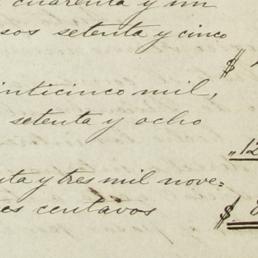 cuarenta y un
sos setenta y cinco
$
inticinco mil,
setenta y ocho
"12
ta y tres mil nove=
es centavos
$